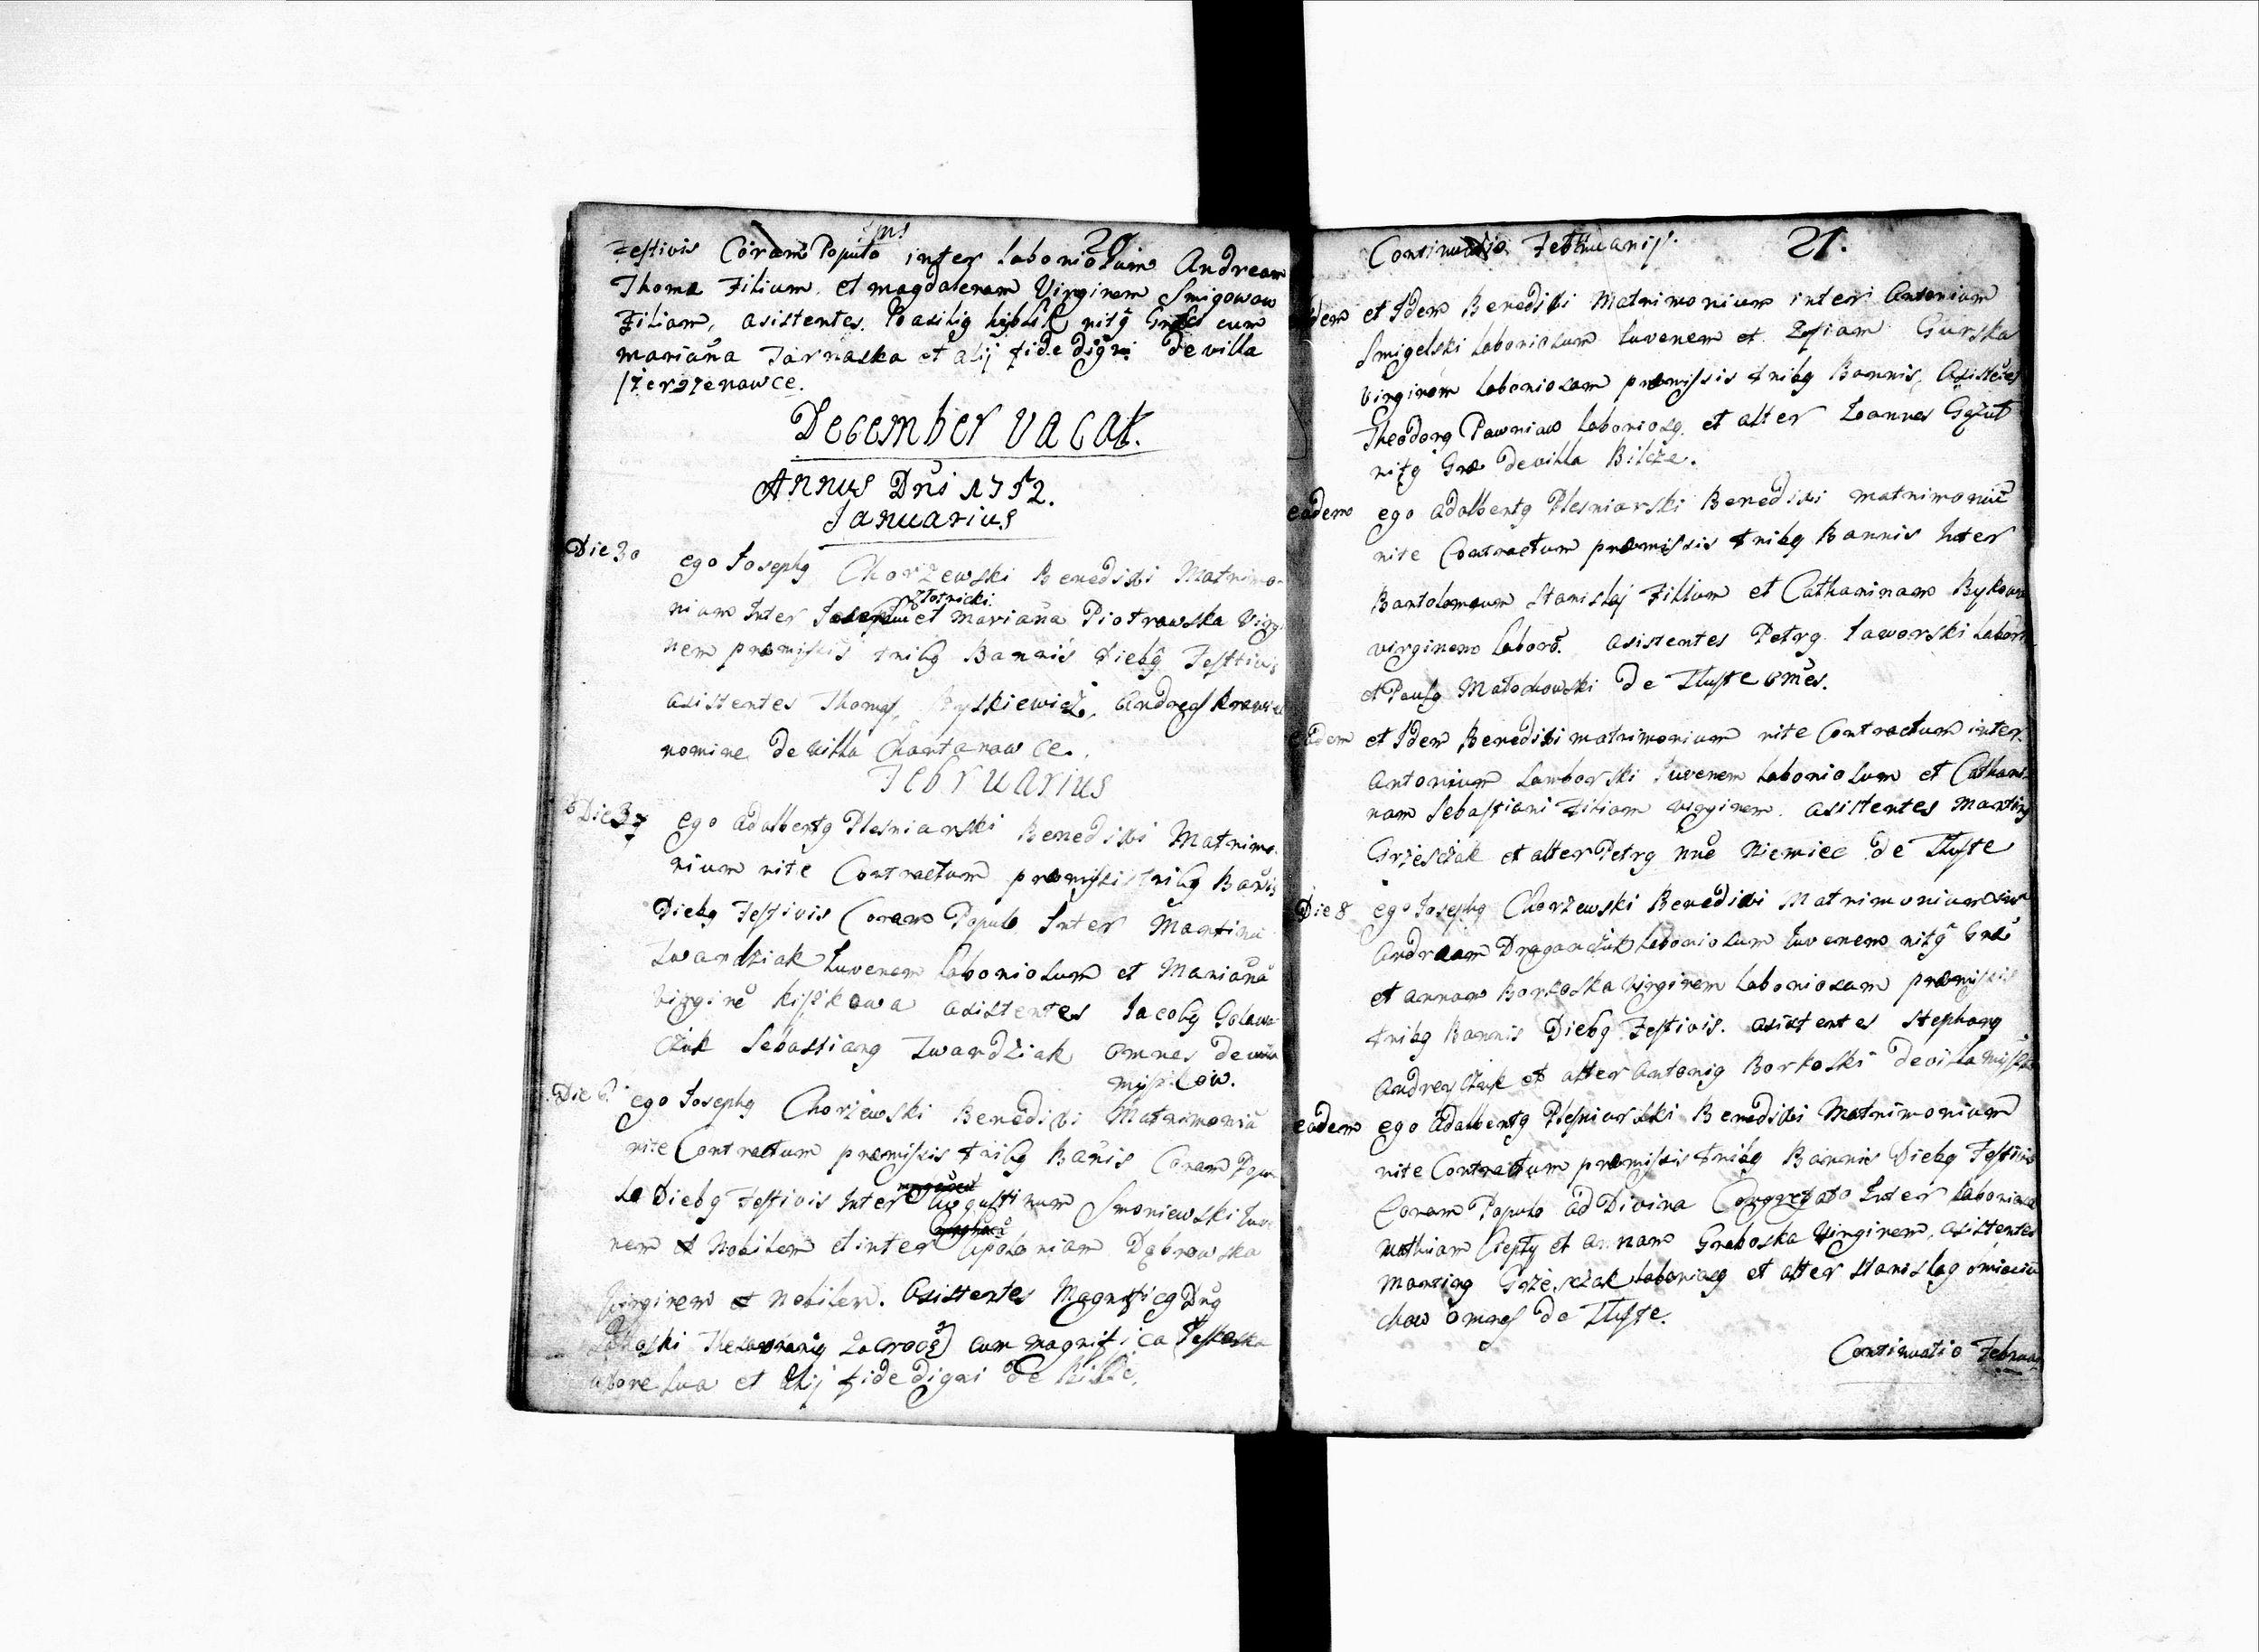 20
Festivis Coram Populo inter laboriosum Andream
Thoma Filium et magdalenam Virginem Smigowow
Filiam, asistentes. Woasilig hyblik ritg Græci cum
mariana Tarnaska et alij fide digni de villa
Szerszenowce.
December vacat.
Annus Dni 1752.
Januarius
Die 30 ego Josephg Chorzewski Benedixi Matrimo-
Złotnicki
nium Inter Josephum et Mariana Piotrowska Virgi
nem præmissis tribg Bannis Diebg Festivis
asistentes Thomas Ryskiewicz, Andreas Krawiec
nomine de villa Chartanowce.
Februarius
Die 3 ego Adalbertg Plesniarski Benedixi Matrimo-
nium rite Contractum præmissis tribg Banis
Diebg Festivis Coram Populo Inter Martinu
Twardziak Iuvenem laboriosum et Marianā
virginē kispkowa asistentes Jacobg Golawa
czuk Sebastiang Twardziak omnes de villa
myszkow.
Die 6 ego Josephg Chorzewski Benedixi Matrimoniū
rite Contractum præmissis tribg Banis Coram Popu
lo Diebg Festivis Inter Augustinum Smoniewski Iuve
nem et Nobilem et inter Apoloniam Dąbrowska
Virginem et Nobilem. Asistentes Magnificg Dng
Thesaurarig cum magnifica
uxore sua et Alij fide digni de Bilcze.
Continuatio Februarij. 21.
eadem et Idem Benedixi Matrimonium inter Antonium
Smigelski laboriosum Iuvenem et Zofiam Gurska
virginem laboriosam præmissis tribg Bannis, Asistētes
Theodorg Pawniaw laboriosg. et alter Ioannes Gązut
ritg Græ de villa Bilcze.
eadem ego Adalbertg Plesniarski Benedixi matrimoniū
rite Contractum præmissis tribg Bannis Inter
Bartolomeum Stanislaj Filium et Catharinam Bykowa
virginem laborō. asistentes Petrg Jaworski labori
et Paulg Małachowski de Tłuste omēs.
eadem et Idem Benedixi matrimonium rite Contractum inter
Antonium Lamborski Iuvenem laboriosum et Cathari-
nam Sebastiani Filiam virginem. asistentes Marting
Grzesczak et alter Petrg nnē Niemiec de Tłuste
Die 8 ego Josephg Chorzewski Benedixi Matrimonium
Andream Draganczuk laboriosum Iuvenem ritg Græ
et annam Borkoska virginem laboriosam præmissis
tribg Bannis Diebg Festivis. asistentes Stephang
Andreyczuk et alter Antonig Borkoski de villa Mysz
eadem ego Adalbertg Plesniarski Benedixi Matrimonium
rite Contractum præmissis tribg Bannis Diebg Festivis
Coram Populo ad Divina Congregato Inter laborios
Mathiam Ciepły et annam Graboska Virginem, asistentes
Marting Grzesczak laboriosg et alter Stanislag Smiecia
chow omnes de Tłuste.
Continuatio Februarij